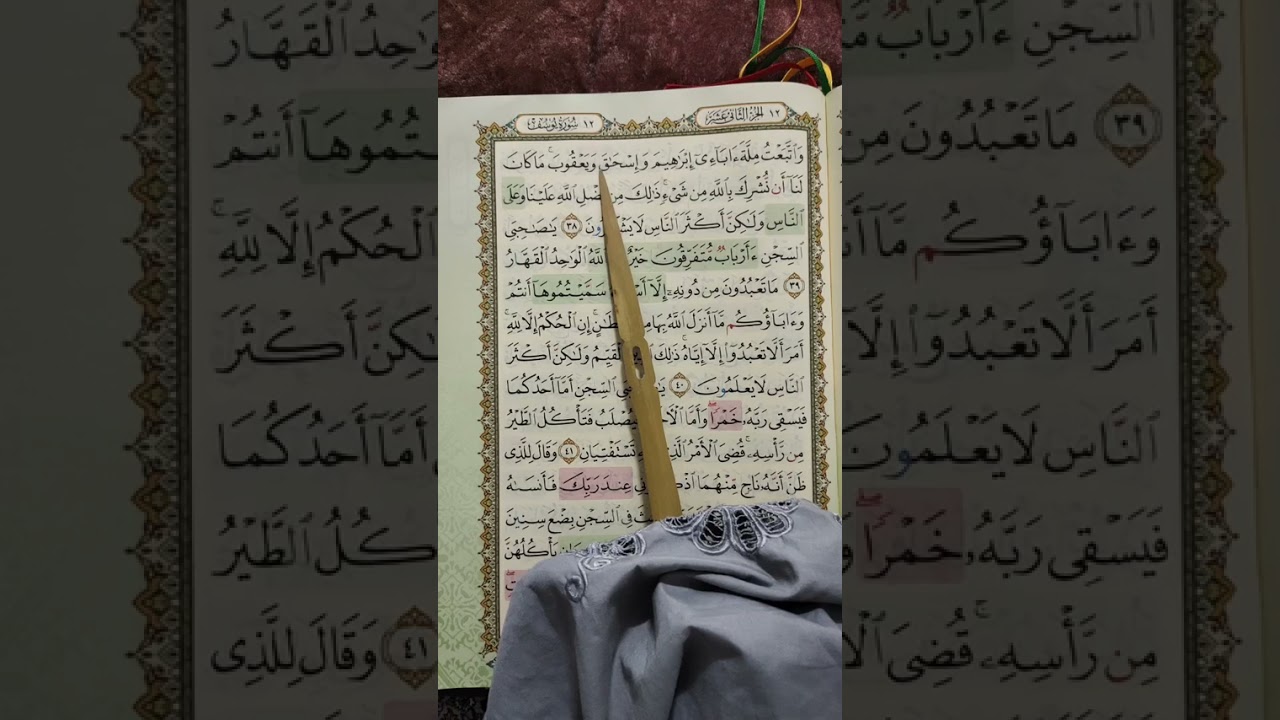 ١٢ الجزء الثاني عشر
سورة يوسف ١٢
وَٱتَّبَعْتُ مِلَّةَ ءَابَآءِىٓ إِبْرَٰهِيمَ وَإِسْحَٰقَ وَيَعْقُوبَ ۚ مَا كَانَ
لَنَآ أَن نُّشْرِكَ بِٱللَّهِ مِن شَىْءٍ ۚ ذَٰلِكَ مِن فَضْلِ ٱللَّهِ عَلَيْنَا وَعَلَى
ٱلنَّاسِ وَلَٰكِنَّ أَكْثَرَ ٱلنَّاسِ لَا يَشْكُرُونَ ٣٨ يَٰصَىٰحِبَىِ
ٱلسِّجْنِ ءَأَرْبَابٌ مُّتَفَرِّقُونَ خَيْرٌ ٱللَّهُ ٱلْوَٰحِدُ ٱلْقَهَّارُ
٣٩ مَا تَعْبُدُونَ مِن دُونِهِۦٓ إِلَّآ سَمَّيْتُمُوهَآ أَنتُمْ
وَءَابَآؤُكُم مَّآ أَنزَلَ ٱللَّهُ بِهَا مِن إِنِ ٱلْحُكْمُ إِلَّا لِلَّهِ ۚ
أَمَرَ أَلَّا تَعْبُدُوٓا۟ إِلَّآ إِيَّاهُ ۚ ذَٰلِكَ ٱلْقَيِّمُ وَلَٰكِنَّ أَكْثَرَ
ٱلنَّاسِ لَا يَعْلَمُونَ ٤٠ ٱلسِّجْنِ أَمَّآ أَحَدُكُمَا
فَيَسْقِى رَبَّهُۥ خَمْرًا ۖ وَأَمَّا فَيُصْلَبُ فَتَأْكُلُ ٱلطَّيْرُ
مِن رَّأْسِهِۦ ۚ قُضِىَ ٱلْأَمْرُ تَسْتَفْتِيَانِ ٤١ وَقَالَ لِلَّذِى
ظَنَّ أَنَّهُۥ نَاجٍ مِّنْهُمَا عِندَ رَبِّكَ فَأَنسَىٰهُ
فِى ٱلسِّجْنِ بِضْعَ سِنِينَ
يَأْكُلُهُنَّ